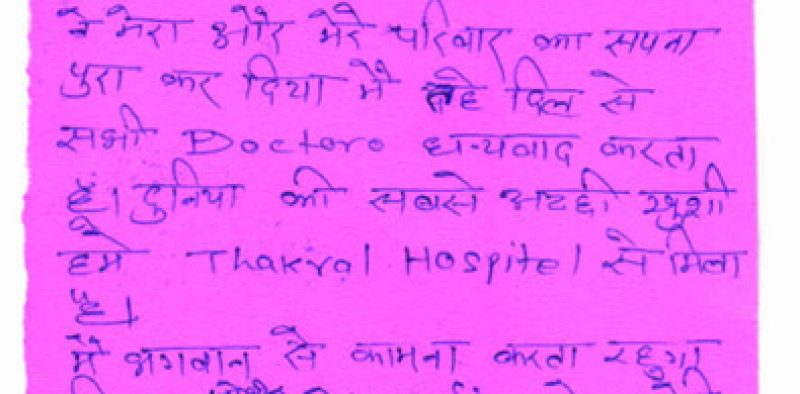 ने मेरा और मेरे परिवार का सपना
पुरा कर दिया मैं तहे दिल से
सभी Doctoro धन्यवाद करता
हूँ। दुनिया की सबसे अच्छी खुशी
हमे Thakral Hospitel से मिला
है।
मैं भगवान से कामना करता रहुगा